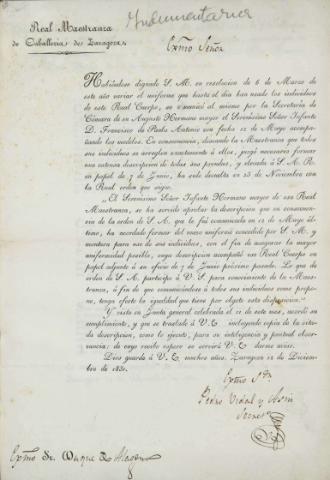 Indumentaria
Real Maestranza
de Caballeria de Zaragoza.
Exmo Señor
Habiéndose dignado S. M. en resolucion de 6 de Marzo de
este año variar el uniforme que hasta el dia han usado los individuos
de este Real Cuerpo, se comunicó al mismo por la Secretaría de
Cámara de su Augusto Hermano mayor el Serenisimo Señor Infante
D. Francisco de Paula Antonio con fecha 12 de Mayo acompa-
ñando los modelos. En consecuencia, deseando la Maestranza que todos
sus individuos se arreglen exactamente á ellos, juzgó necesario formar
una estensa descripcion de todas sus prendas, y elevada á S. A. R. en
papel de 7 de Junio, ha sido devuelta en 23 de Noviembre con
la Real orden que sigue.
"El Serenisimo Señor Infante Hermano mayor de esa Real
Maestranza, se ha servido aprobar la descripcion que en consecuen-
cia de la orden de S. A. que le fué comunicada en 12 de Mayo úl-
timo, ha acordado formar del nuevo uniforme concedido por S. M. y
montura para uso de sus individuos, con el fin de asegurar la mayor
uniformidad posible, cuya descripcion acompañó ese Real Cuerpo en
papel adjunto á su oficio de 7 de Junio próximo pasado. Lo que de
orden de S. A. participo á V. E. para conocimiento de la Maes-
tranza, á fin de que comunicándose á todos sus individuos como pro-
pone, tenga efecto la igualdad que tiene por objeto esta disposicion."
Y visto en Junta general celebrada el 11 de este mes, acordó su
cumplimiento, y que se traslade á V. E. incluyendo copia de la cita-
da descripcion, como lo ejecuto, para su inteligencia y puntual obser-
vancia; de cuyo recibo espero se servirá V. E. darme aviso.
Dios guarde á V. E. muchos años. Zaragoza 12 de Diciem-
bre de 1831.
Exmo Sr.
Pedro Vidal y
Secreto
Exmo Sr. Duque de Alagon